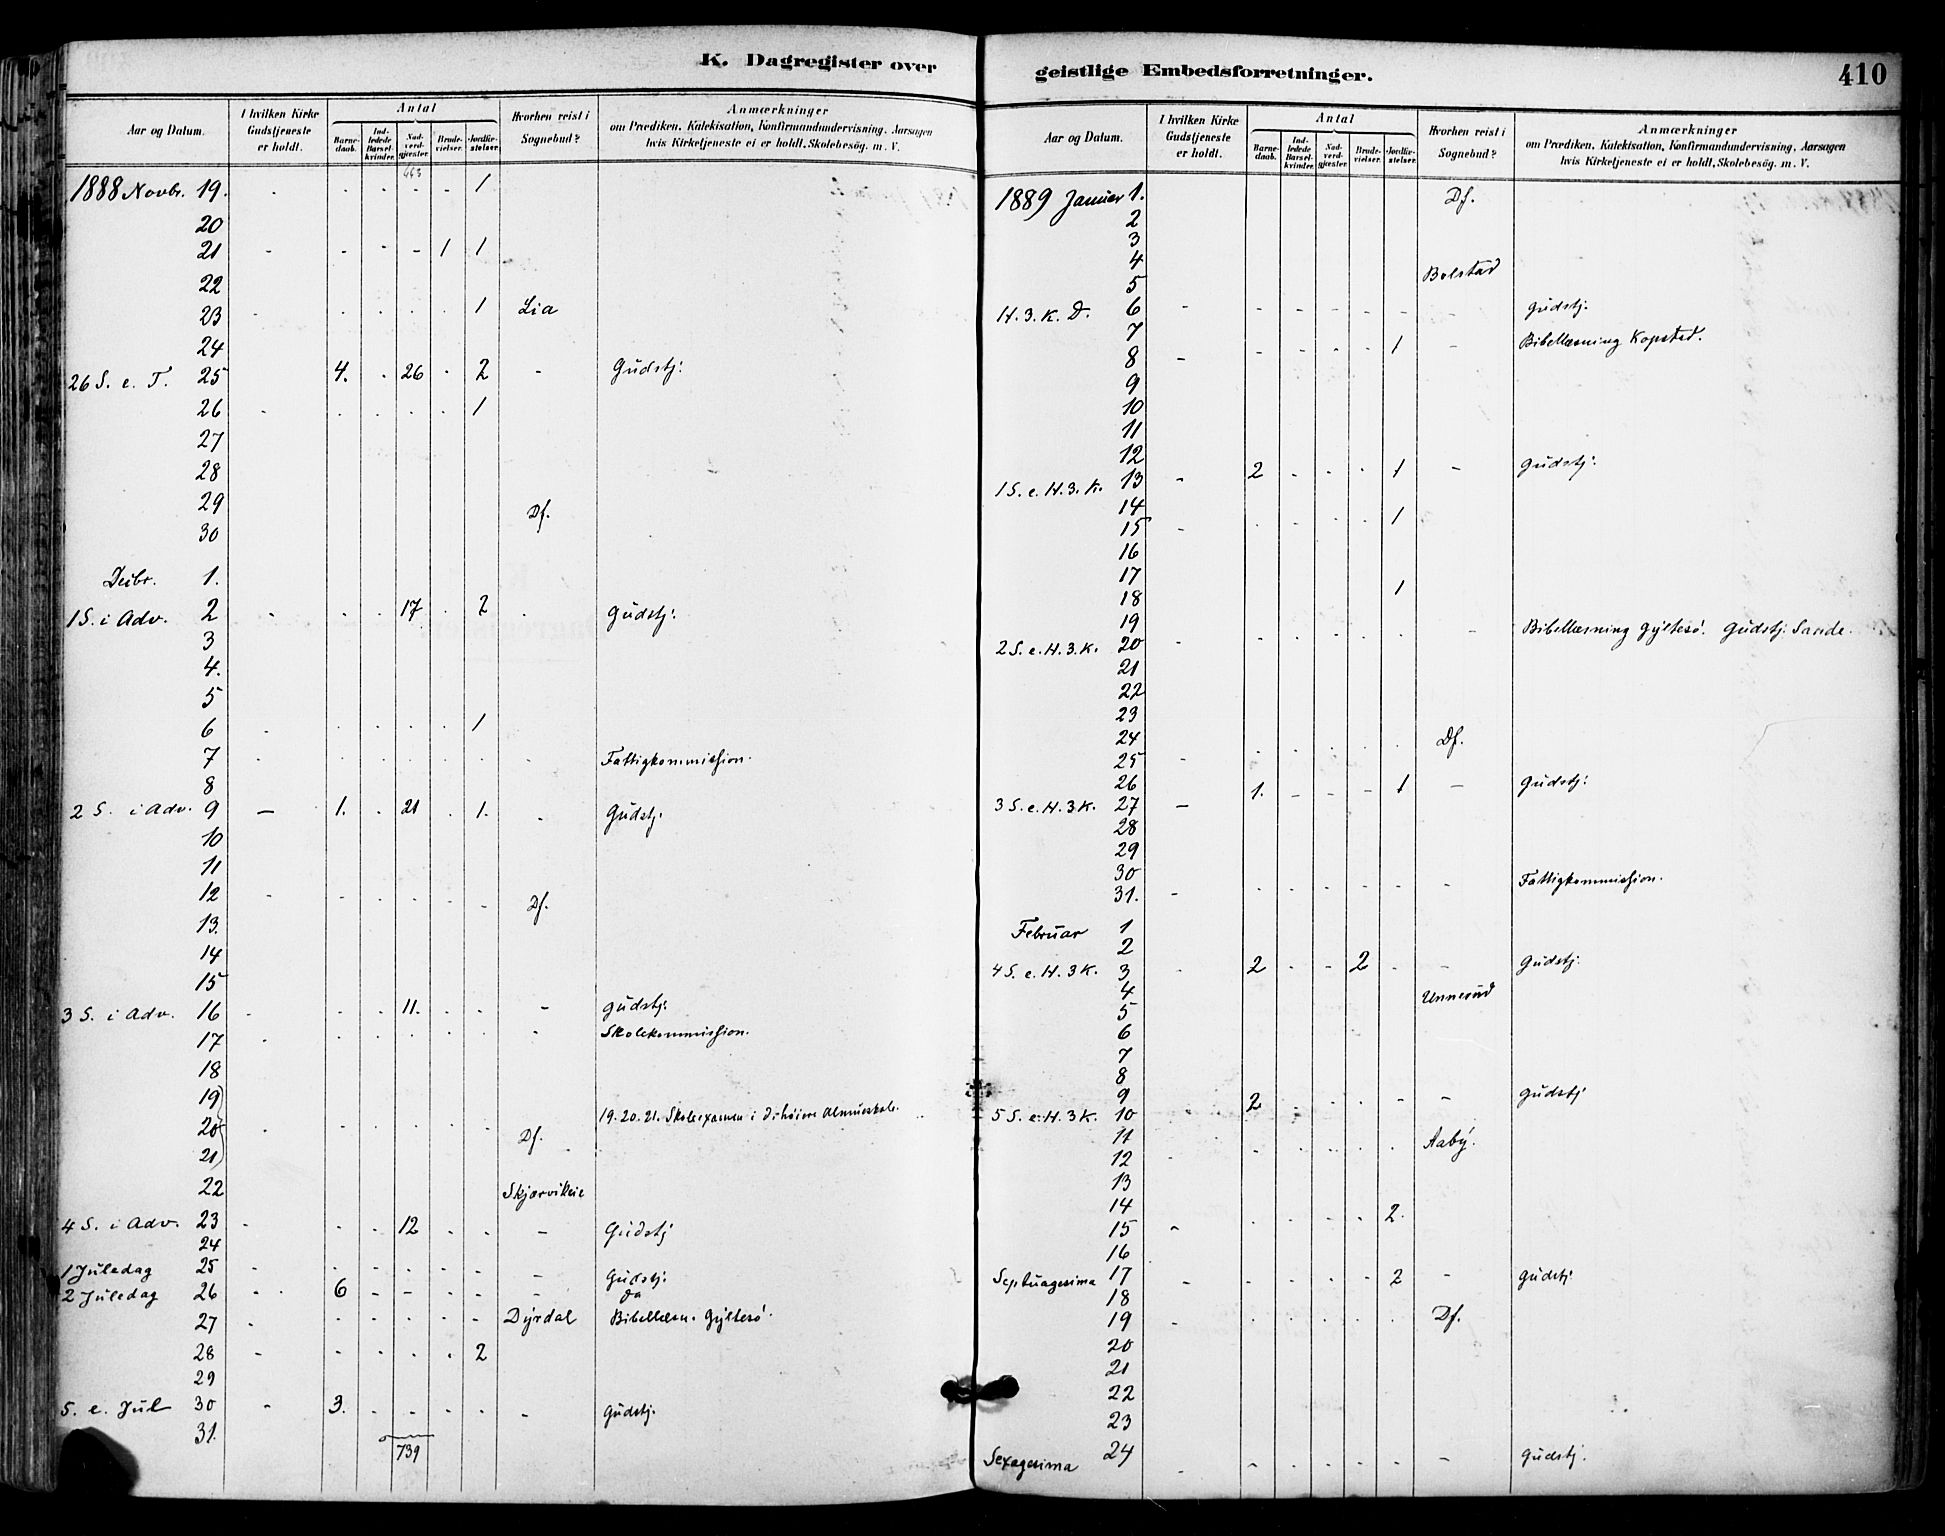 K. Dagregister over
Aar og Datum.
I hvilken Kirke Gudstjeneste er holdt.
Antal
Barne-daab.
Ind-ledede Barsel-kvinder.
Nad-verd-gjæster.
Brude-vielser.
Jordfæ-stelser.
Hvorhen reist i Sognebud?
Anmærkninger
om Prædiken, Katekisation, Konfirmandundervisning, Aarsagen
hvis Kirketjeneste ei er holdt, Skolebesög. m. V.
663
1888 Novbr. 19. - - - - - 1
20
21 - - - - 1 1
22
23 - - - - - 1 Lia
24
26 S. e. T. 25 4. - 26 - 2 - Gudstj:
26 - - - - - 1
27
28
29 Df.
30
Decbr. 1.
1 S. i Adv. 2 - - - 17 - 2 - Gudstj:
3
4.
5
6 - - - - - 1
7 - - - - - - - Fattigkommission.
8
2 S. i Adv. 9 - 1. - 21 - 1. - Gudstj.
10
11
12 - - - - - - Df.
13.
14
15
3 S. i Adv. 16 - - - 11. - - - Gudstj:
17 - - - - - - - Skolekommission.
18
19) 19. 20. 21. Skoleexamen i d. höiere Almueskole.
20 - - - - - - Df.
21)
22 Skjærvikeie
4 S. i Adv. 23 - - - 12 - - - Gudstj
24
1 Juledag 25 - - - - - - - Gudstj:
2 Juledag 26 - 6 - - - - - do
27 - - - - - - Dyrdal Bibellæsn. Gyltesö.
28 - - - - - 2
29
S. e. Jul 30 - 3. - - - - - Gudstj.
31.
739
geistlige Embedsforretninger.
410
Aar og Datum.
I hvilken Kirke Gudstjeneste er holdt.
Antal
Barne-daab.
Ind-ledede Barsel-kvinder.
Nad-verd-gjæster.
Brude-vielser.
Jordfæ-stelser.
Hvorhen reist i Sognebud?
Anmærkninger
om Prædiken, Katekisation, Konfirmandundervisning, Aarsagen
hvis Kirketjeneste ei er holdt, Skolebesög. m. V.
1889 Januar 1. Df.
2
3
4
5 Bolstad
H. 3. K. D. 6 - - - - - - - Gudstj.
7
8 - - - - - 1 - Bibellæsning Kopstad.
9
10
11
12
1 S. e. H. 3. K. 13 - 2 - - - 1 - Gudstj:
14
15 - - - - - 1
16
17
18 1
19
2 S. e. H. 3. K. 20 - - - - - - - Bibellæsning Gyltesö. Gudstj. Sande.
21
22
23
24
25 - - - - - - Df.
26
3 S. e. H. 3 K. 27 - 1. - - - 1 - Gudstj:
28
29
30
31. - - - - - - - Fattigkommission.
Februar 1
2
4 S. e. H. 3 K. 3 - 2 - - 2 - - Gudstj.
4 Unnerud
5
6
7
8
9
5 S. e. H. 3 K. 10 - 2 - - - - - Gudstj
11
12 - - - - - - Aaby.
13
14
15 - - - - - 2.
16
Septuagesima 17 - - - - - 2 - Gudstj
18
19 - - - - - - Df.
20
21
22
23
Sexagesima 24 - - - - - - - Gudstj.